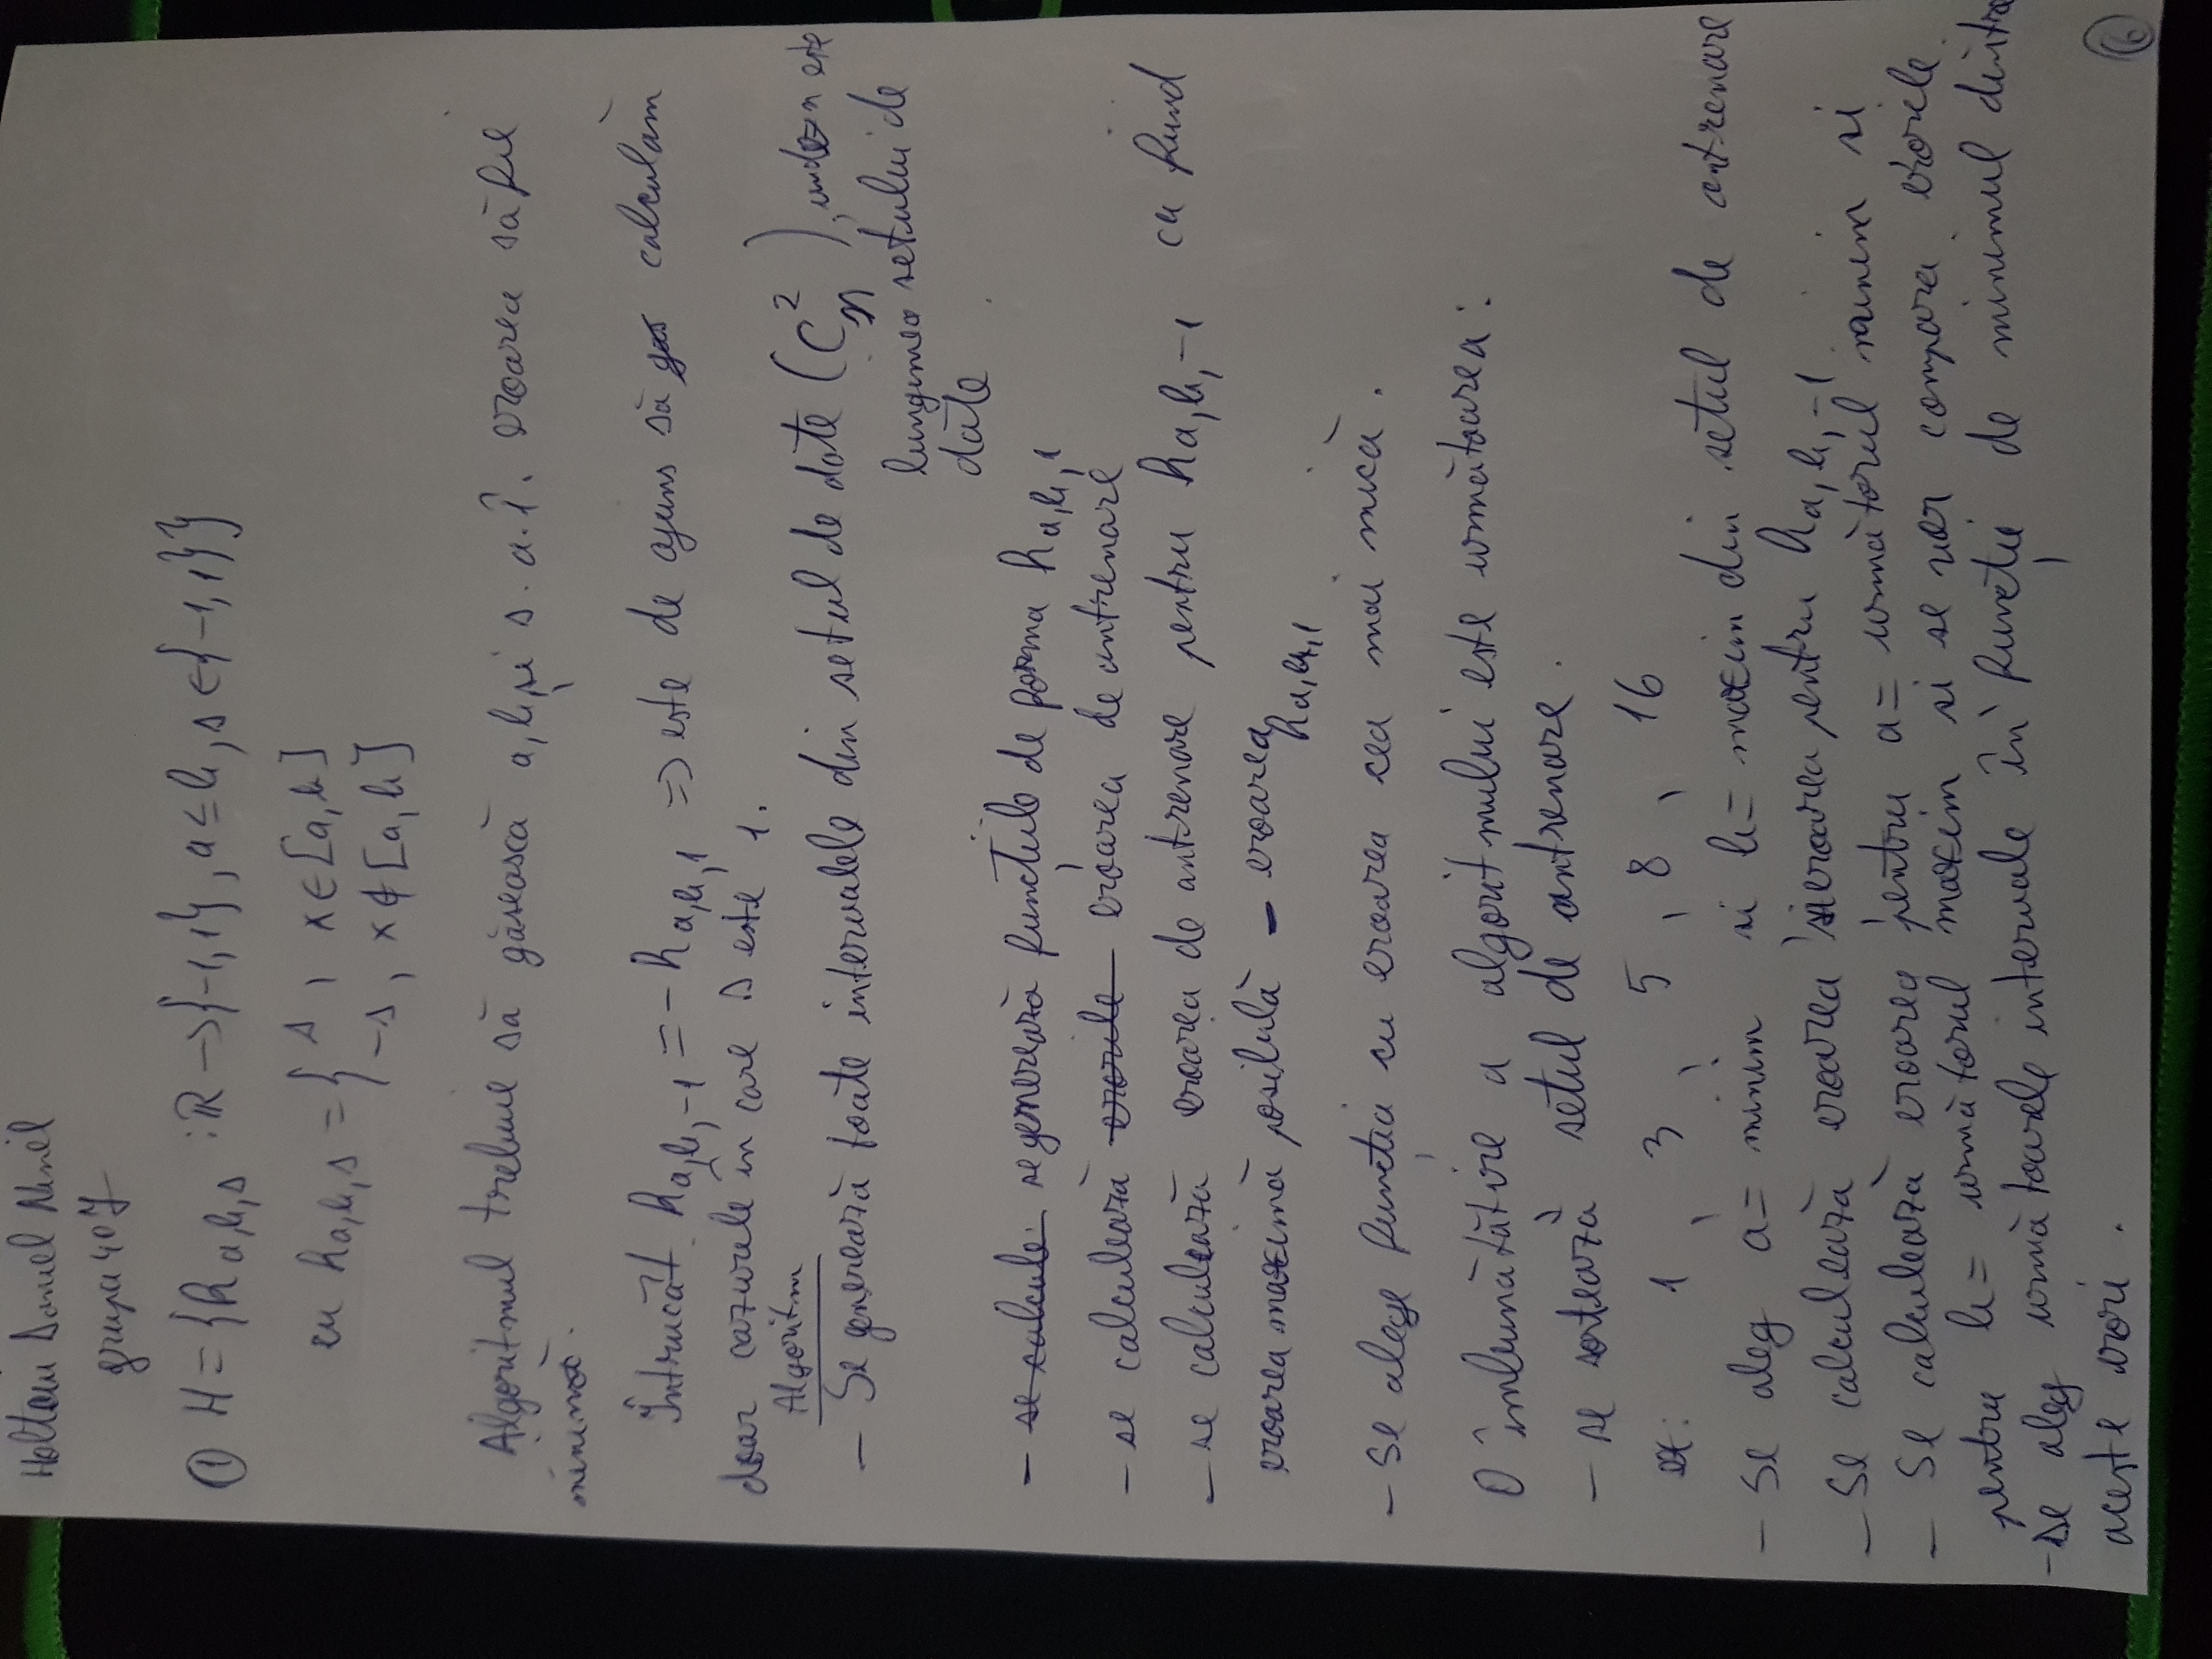 Holteiu Daniel Ninel
grupa 407
① H = {h a,b,s : ℝ → {-1,1}, a ≤ b, s ∈ {-1,1}}
cu h a,b,s = { s , x ∈ [a,b]
-s , x ∉ [a,b]
Algoritmul trebuie să găsească a, b, și s. a.î. eroarea să fie
minimă.
Întrucât h a,b,-1 = - h a,b,1 => este de ajuns să calculăm
doar cazurile în care s este 1.
Algoritm
- Se generează toate intervalele din setul de date (C²n), unde n este
lungimea setului de
date
- se calcule se generează funcțiile de forma h a,b,1
- se calculează erorile eroarea de antrenare
- se calculează eroarea de antrenare pentru h a,b,-1 ca fiind
eroarea maximă posibilă - eroarea h a,b,1
- Se alege funcția cu eroarea cea mai mică.
O îmbunătățire a algoritmului este următoarea:
- se sortează setul de antrenare.
ex: 1 , 3 , 5 , 8 , 16
- Se aleg a = minim si b = maxim din setul de antrenare
- Se calculează eroarea si eroarea pentru h a,b,-1
- Se calculează eroarea pentru a = următorul minim si
pentru b = următorul maxim si se vor compara erorile
- se aleg următoarele intervale în funcție de minimul dintre
aceste erori.
⑥